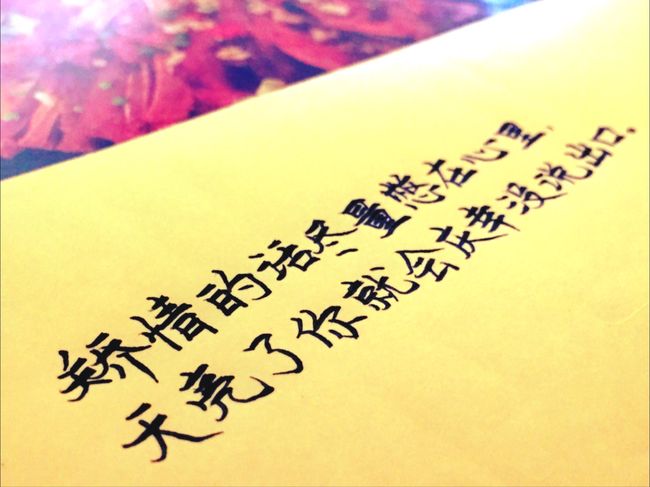 矫情的话尽量憋在心里,
天亮了你就会庆幸没说出口.